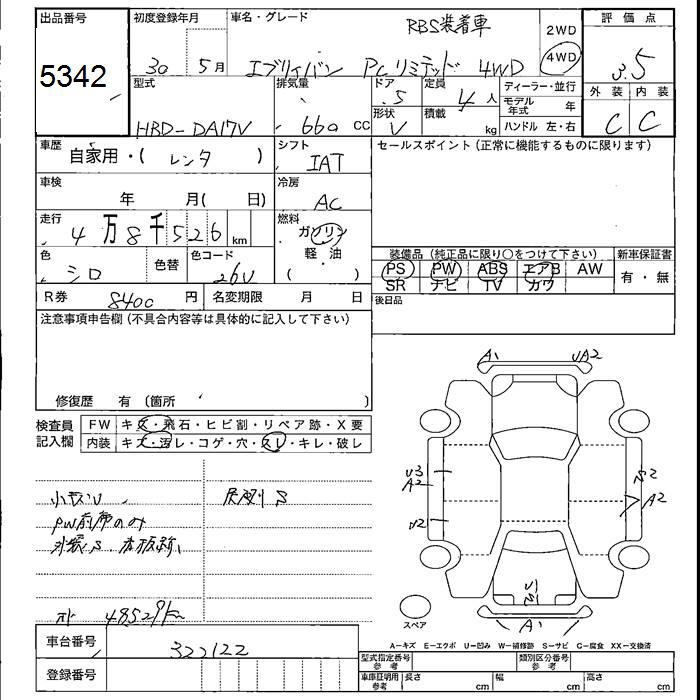 出品番号 初度登録年月 車名・グレード RBS装着車 2WD 評価点
5342 30 5月 エブリィバン PCリミテッド 4WD 4WD 3.5
型式 排気量 ドア 定員 ディーラー・並行 外装 内装
5 4人 モデル年式 年
HBD-DA17V 660 cc 形状 V 積載 kg ハンドル 左・右 C C
車歴 自家用・( レンタ ) シフト IAT セールスポイント (正常に機能するものに限ります)
車検 年 月( 日) 冷房 AC
走行 4万8千526 km 燃料 ガソリン
軽・油
( )
色 シロ 色替 色コード 26U 装備品 (純正品に限り○をつけて下さい) 新車保証書
PS PW ABS エアB AW 有・無
SR ナビ TV カワ
R券 8400 円 名変期限 月 日 後日品
注意事項申告欄 (不具合内容等は具体的に記入して下さい)
修復歴 有 (箇所 )
検査員 FW キズ・飛石・ヒビ割・リペア跡・X要
記入欄 内装 キズ・汚レ・コゲ・穴・スレ・キレ・破レ
A1 UA2
U3
A2
U2
A2
A1
小キズU
PW前席のみ
外装S
48529km
スペア
A-キズ E-エクボ U-凹み W-補修跡 S-サビ C-腐食 XX-交換済
車台番号 322122
登録番号
型式指定番号 参考 類別区分番号 参考
車庫証明用 参考 長さ cm 幅 cm 高さ cm